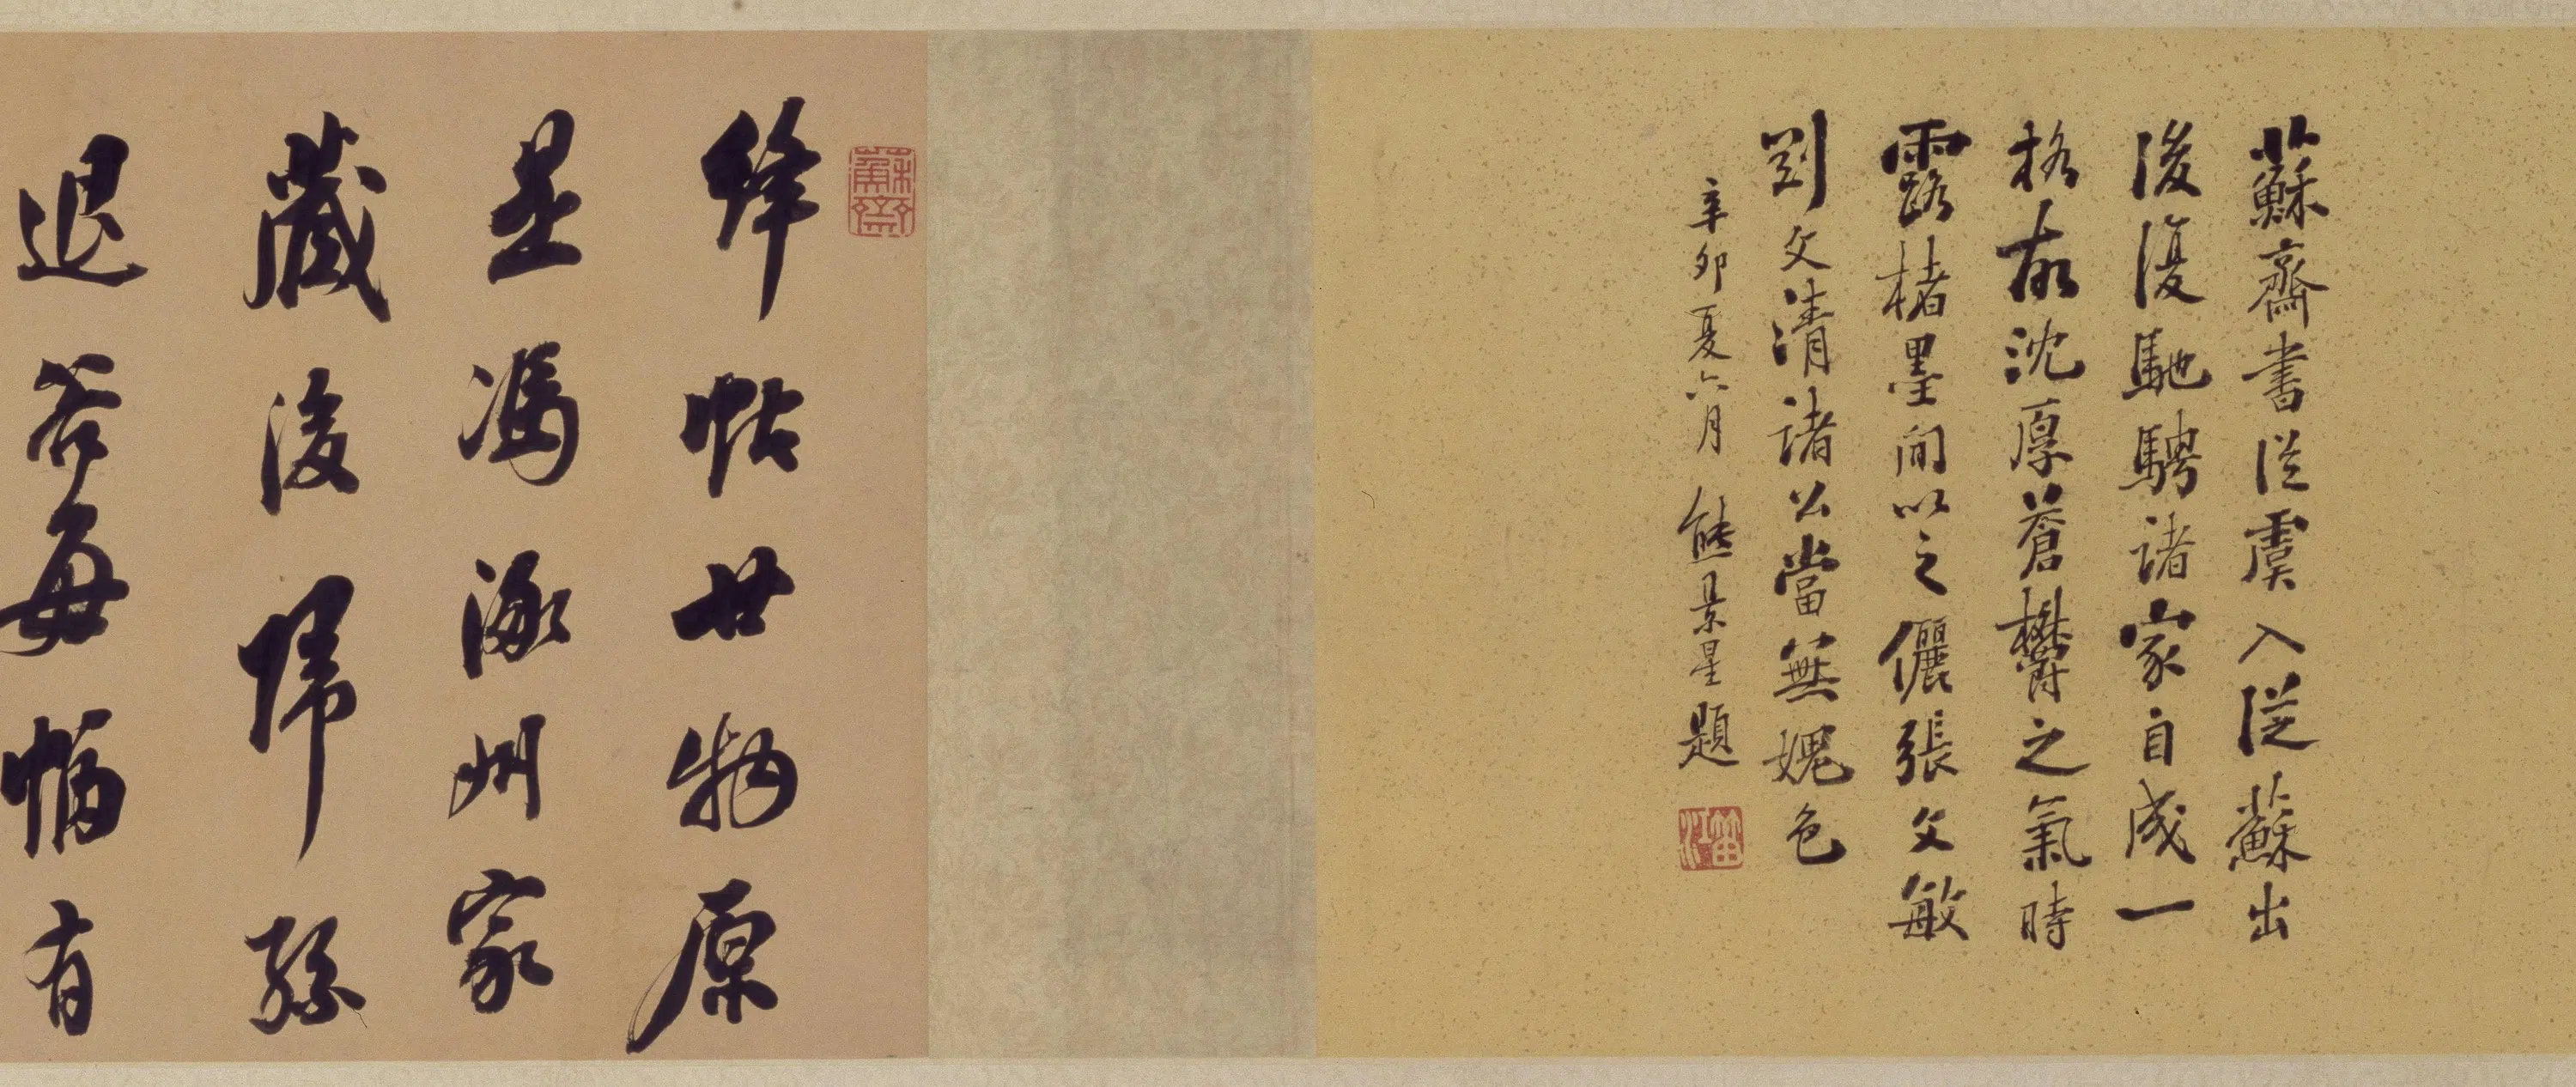 蘇齋書從虞入從蘇出
後復馳騁諸家自成一
格故沈厚蒼欝之氣時
露楮墨間以之儷張文敏
劉文清諸公當無媿色
辛卯夏六月 熊景星題
笛江
蘇齋
絳帖廿物原
是馮涿州家
藏後歸孫
退谷每幅有